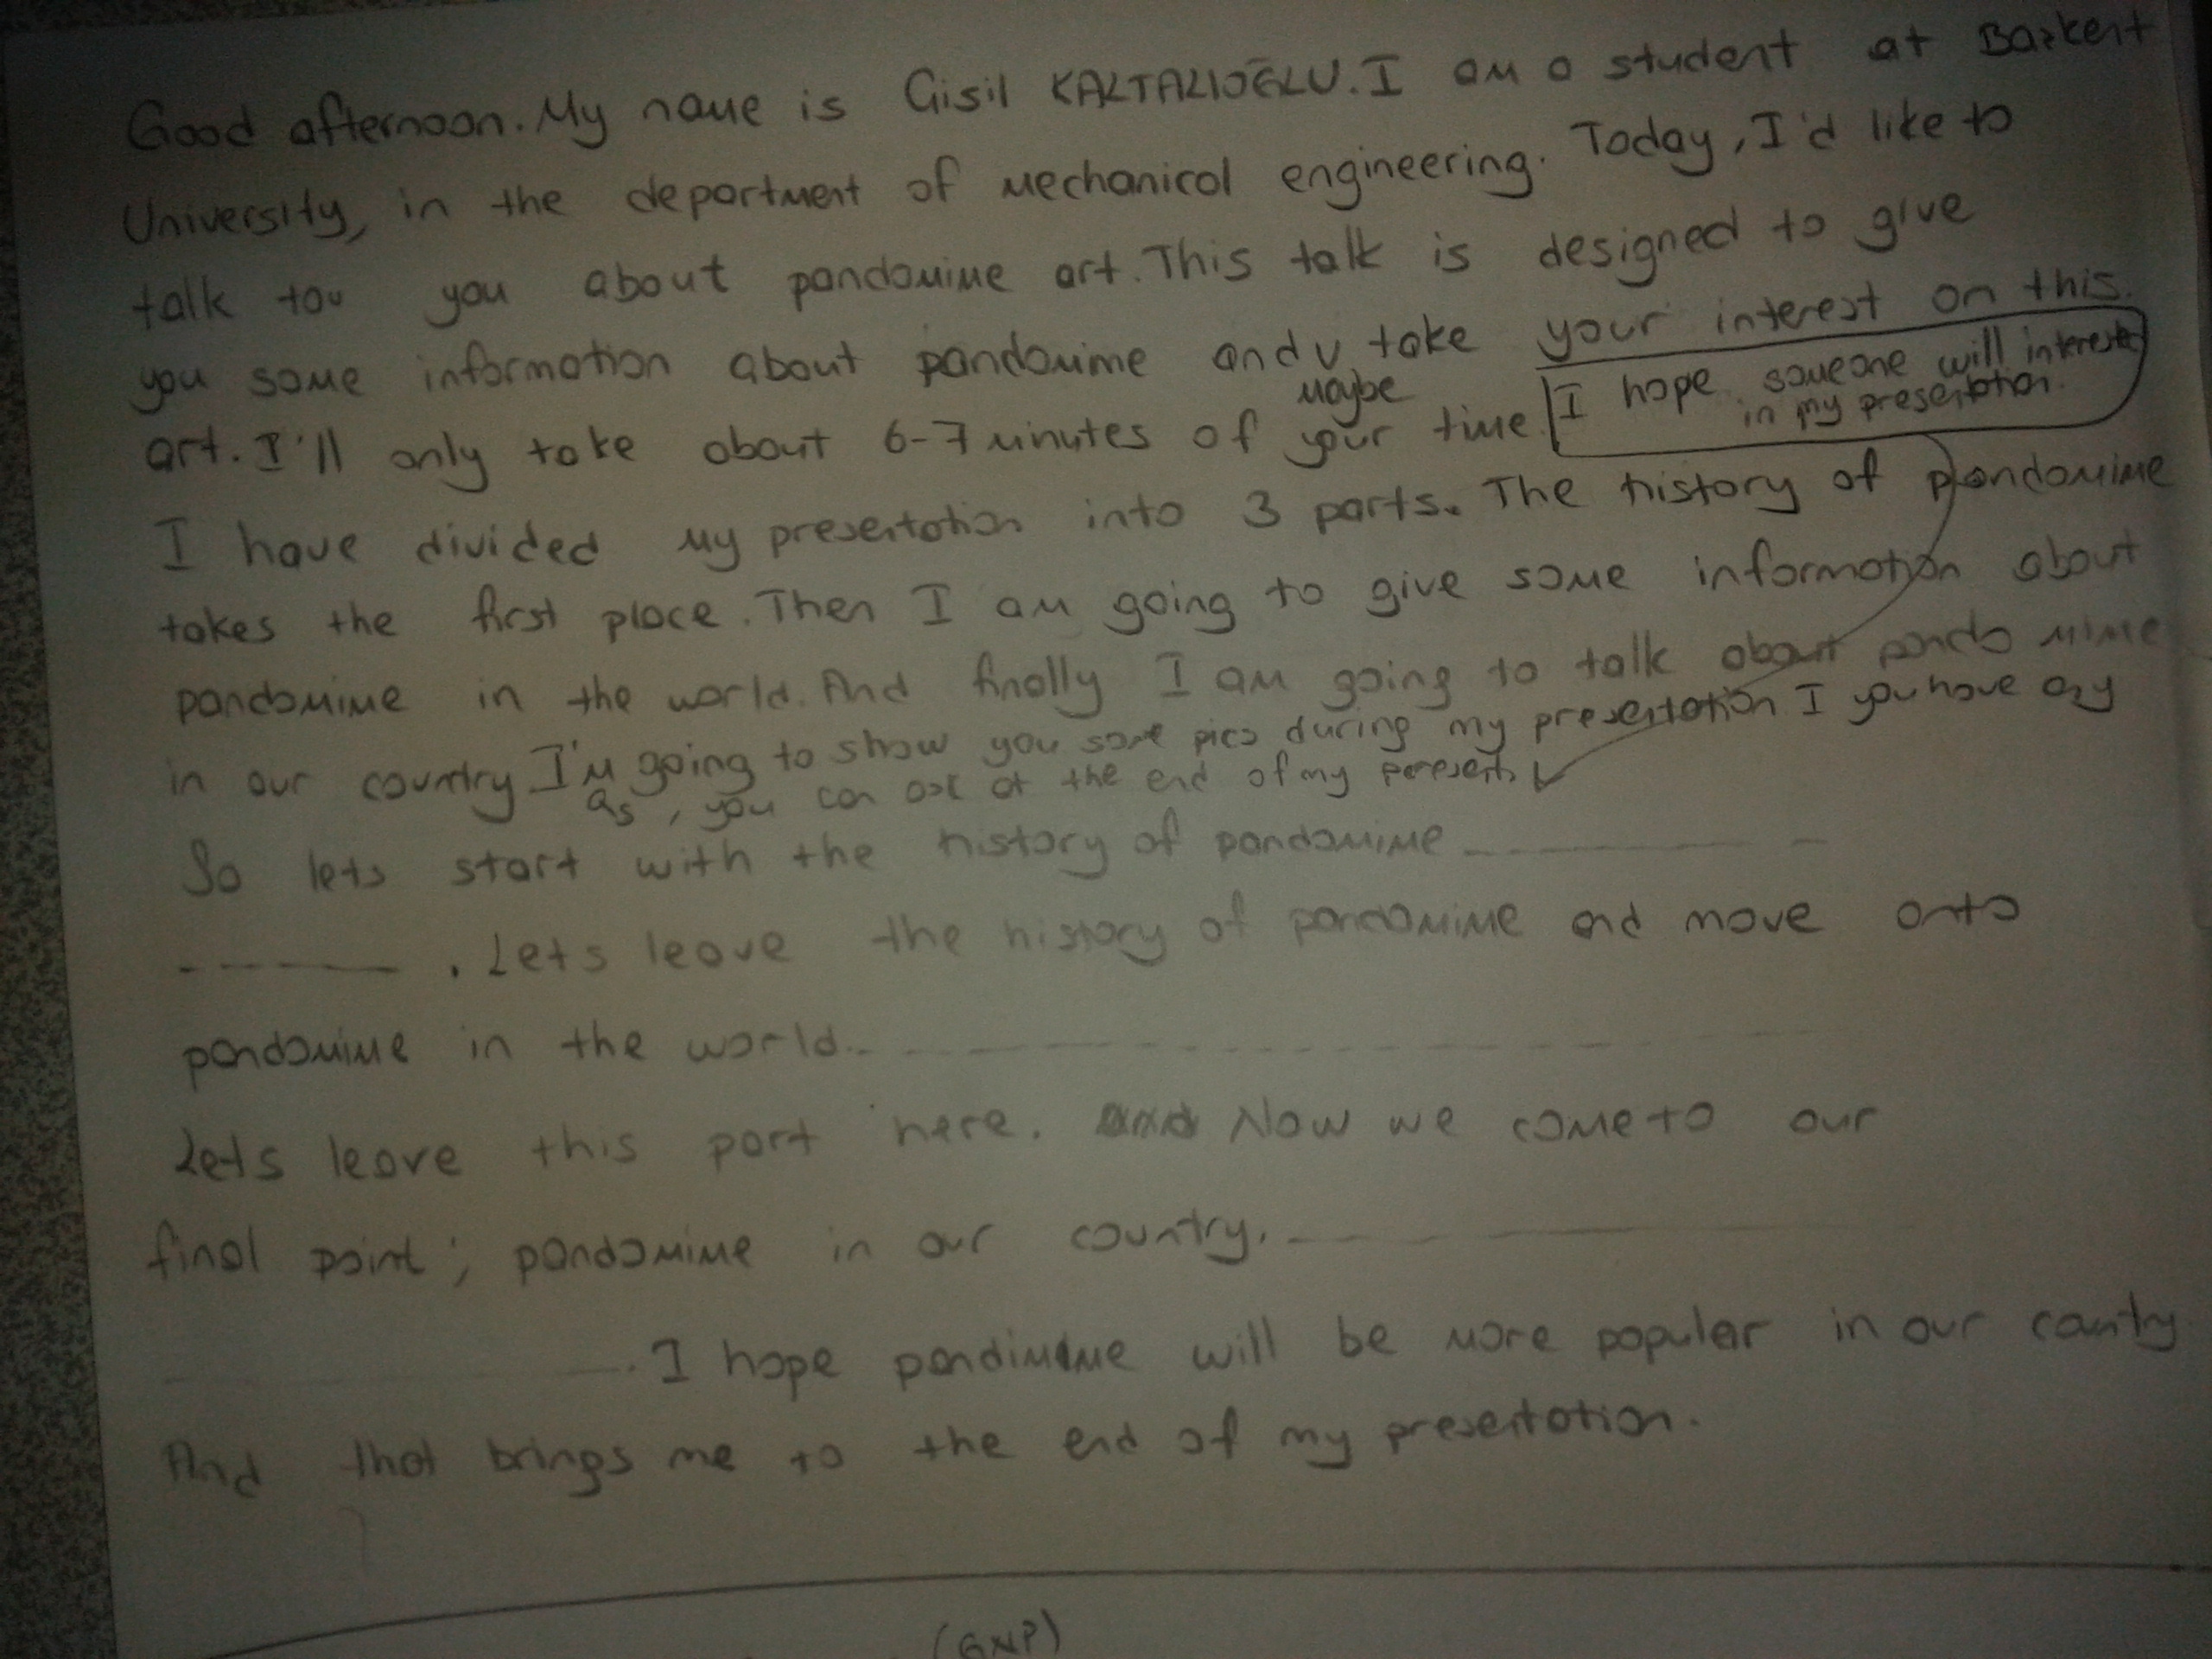 Good afternoon. My name is Gisil KALTALIOĞLU. I am a student at Başkent
University, in the department of mechanical engineering. Today, I'd like to
talk to you about pandomime art. This talk is designed to give
you some information about pandomime and take your interest on this
maybe
art. I'll only take about 6-7 minutes of your time.
I hope someone will interested
in my presentation.
I have divided my presentation into 3 parts. The history of pandomime
takes the first place. Then I am going to give some information about
pandomime in the world. And finally I am going to talk about pandomime
in our country I'm going to show you some pics during my presentation I you have any
qs, you can ask at the end of my
So lets start with the history of pandomime
. Lets leave the history of pandomime and move onto
pandomime in the world.
Lets leave this part here. Now we come to our
final point; pandomime in our country.
. I hope pandimime will be more popular in our country
And that brings me to the end of my presentation.
(GNP)